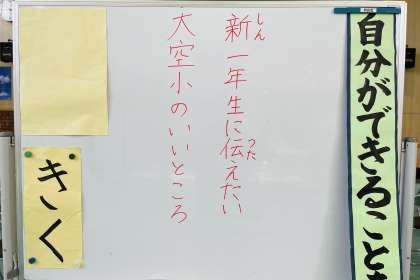 自分ができることを
新一年生に伝えたい
しん
つた
大空小のいいところ
きく